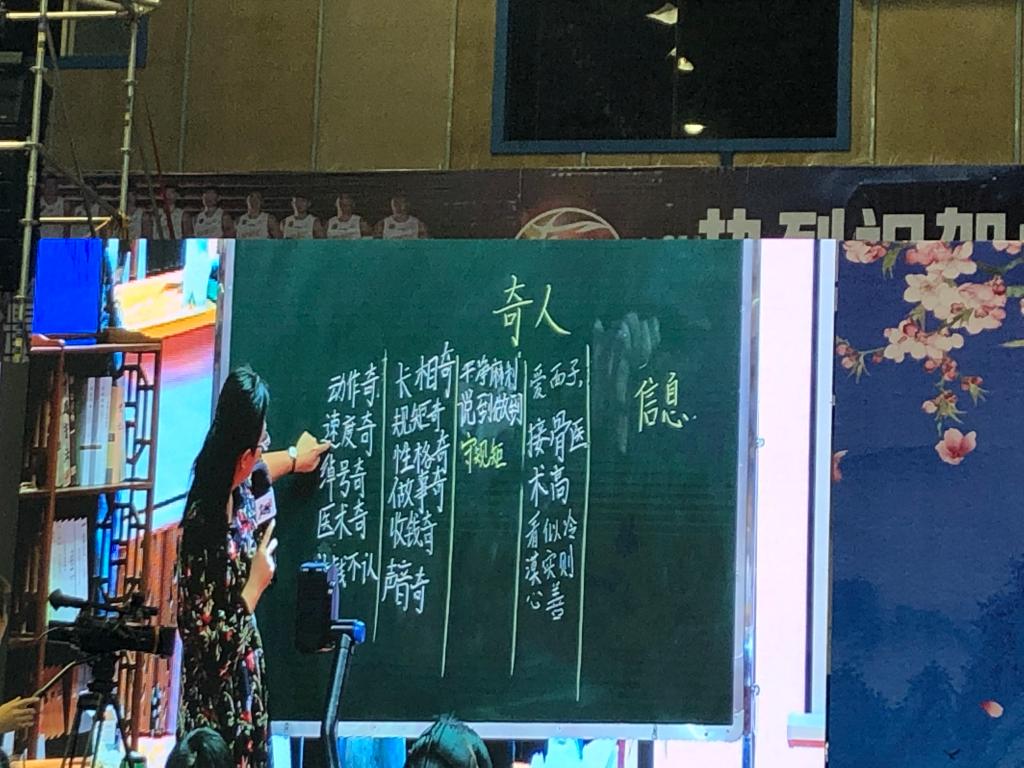 热烈祝贺
奇人
动作奇
速度奇
绰号奇
医术奇
钱不认
长相奇
规矩奇
性格奇
做事奇
收钱奇
声音奇
干净麻利
说到做到
守规矩
爱面子,
接骨医
术高
看似冷
漠实则
心善
信息